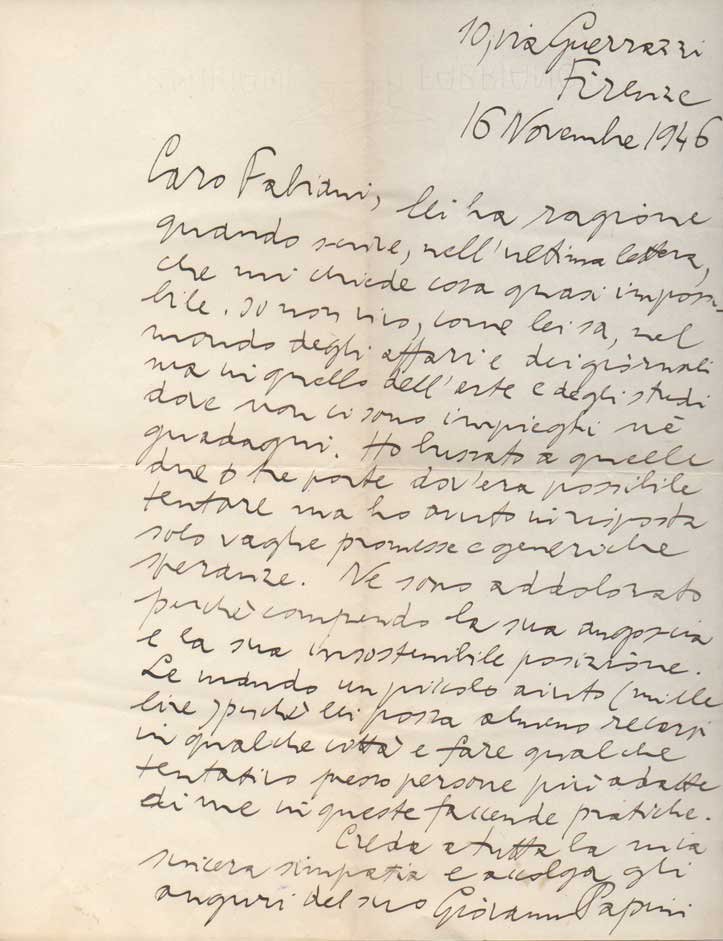 10, via Guerrazzi
Firenze
16 Novembre 1946
Caro Fabiani, lei ha ragione
quando scrive, nell'ultima lettera,
che mi chiede cosa quasi impossi-
bile. Io non vivo, come lei sa, nel
mondo degli affari e dei giornali
ma in quello dell'arte e degli studi
dove non ci sono impieghi nè
guadagni. Ho bussato a quelle
due o tre porte dov'era possibile
tentare ma ho avuto in risposta
solo vaghe promesse e generiche
speranze. Ne sono addolorato
perchè comprendo la sua angoscia
e la sua insostenibile posizione.
Le mando un piccolo aiuto (mille
lire) perchè lei possa almeno recarsi
in qualche città e fare qualche
tentativo presso persone più adatte
di me in queste faccende pratiche.
Creda a tutta la mia
sincera simpatia e accolga gli
auguri del suo Giovanni Papini